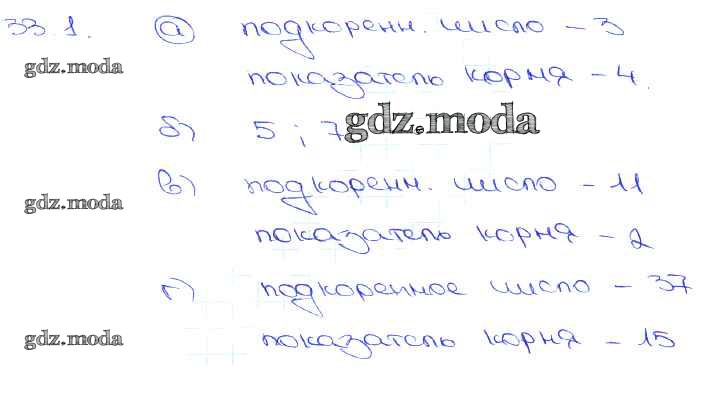 33.1. а) подкоренн. число – 3
gdz.moda
показатель корня – 4.
б) 5 ; 7
gdz.moda
в) подкоренн. число – 11
gdz.moda
показатель корня – 2
г) подкоренное число – 37
gdz.moda
показатель корня – 15